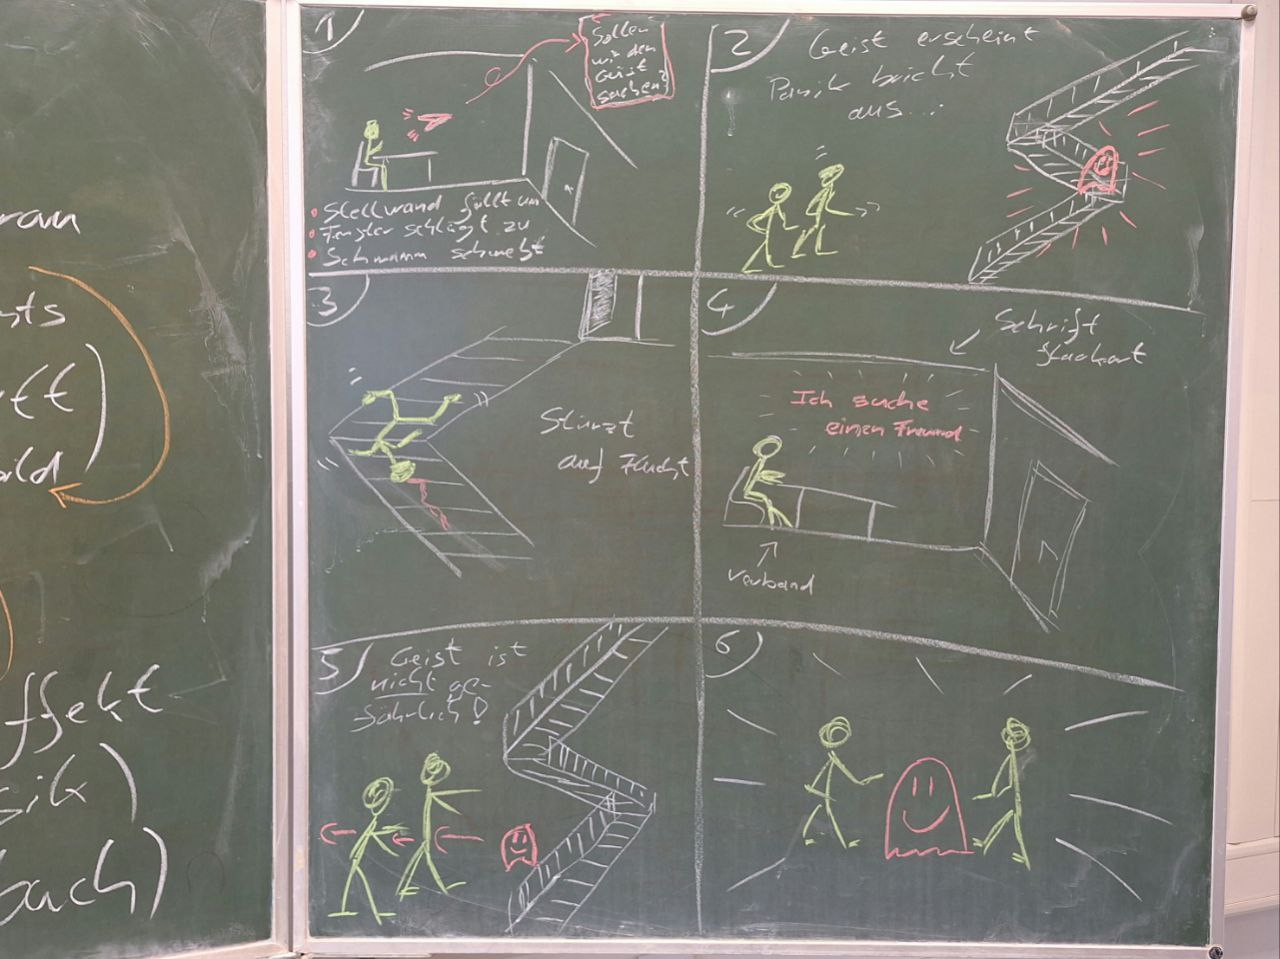 ran
ts
tt)
ild
ffekt
sik)
bach)
1
Sollen
wir den
Geist
suchen?
• Stellwand fällt um
• Fenster schlägt zu
• Schwamm schwebt
2
Geist erscheint
Panik bricht
aus...
3
Sturz
auf Flucht
4
Schrift
flackert
Ich suche
einen Freund
Verband
5
Geist ist
nicht ge-
fährlich!
6